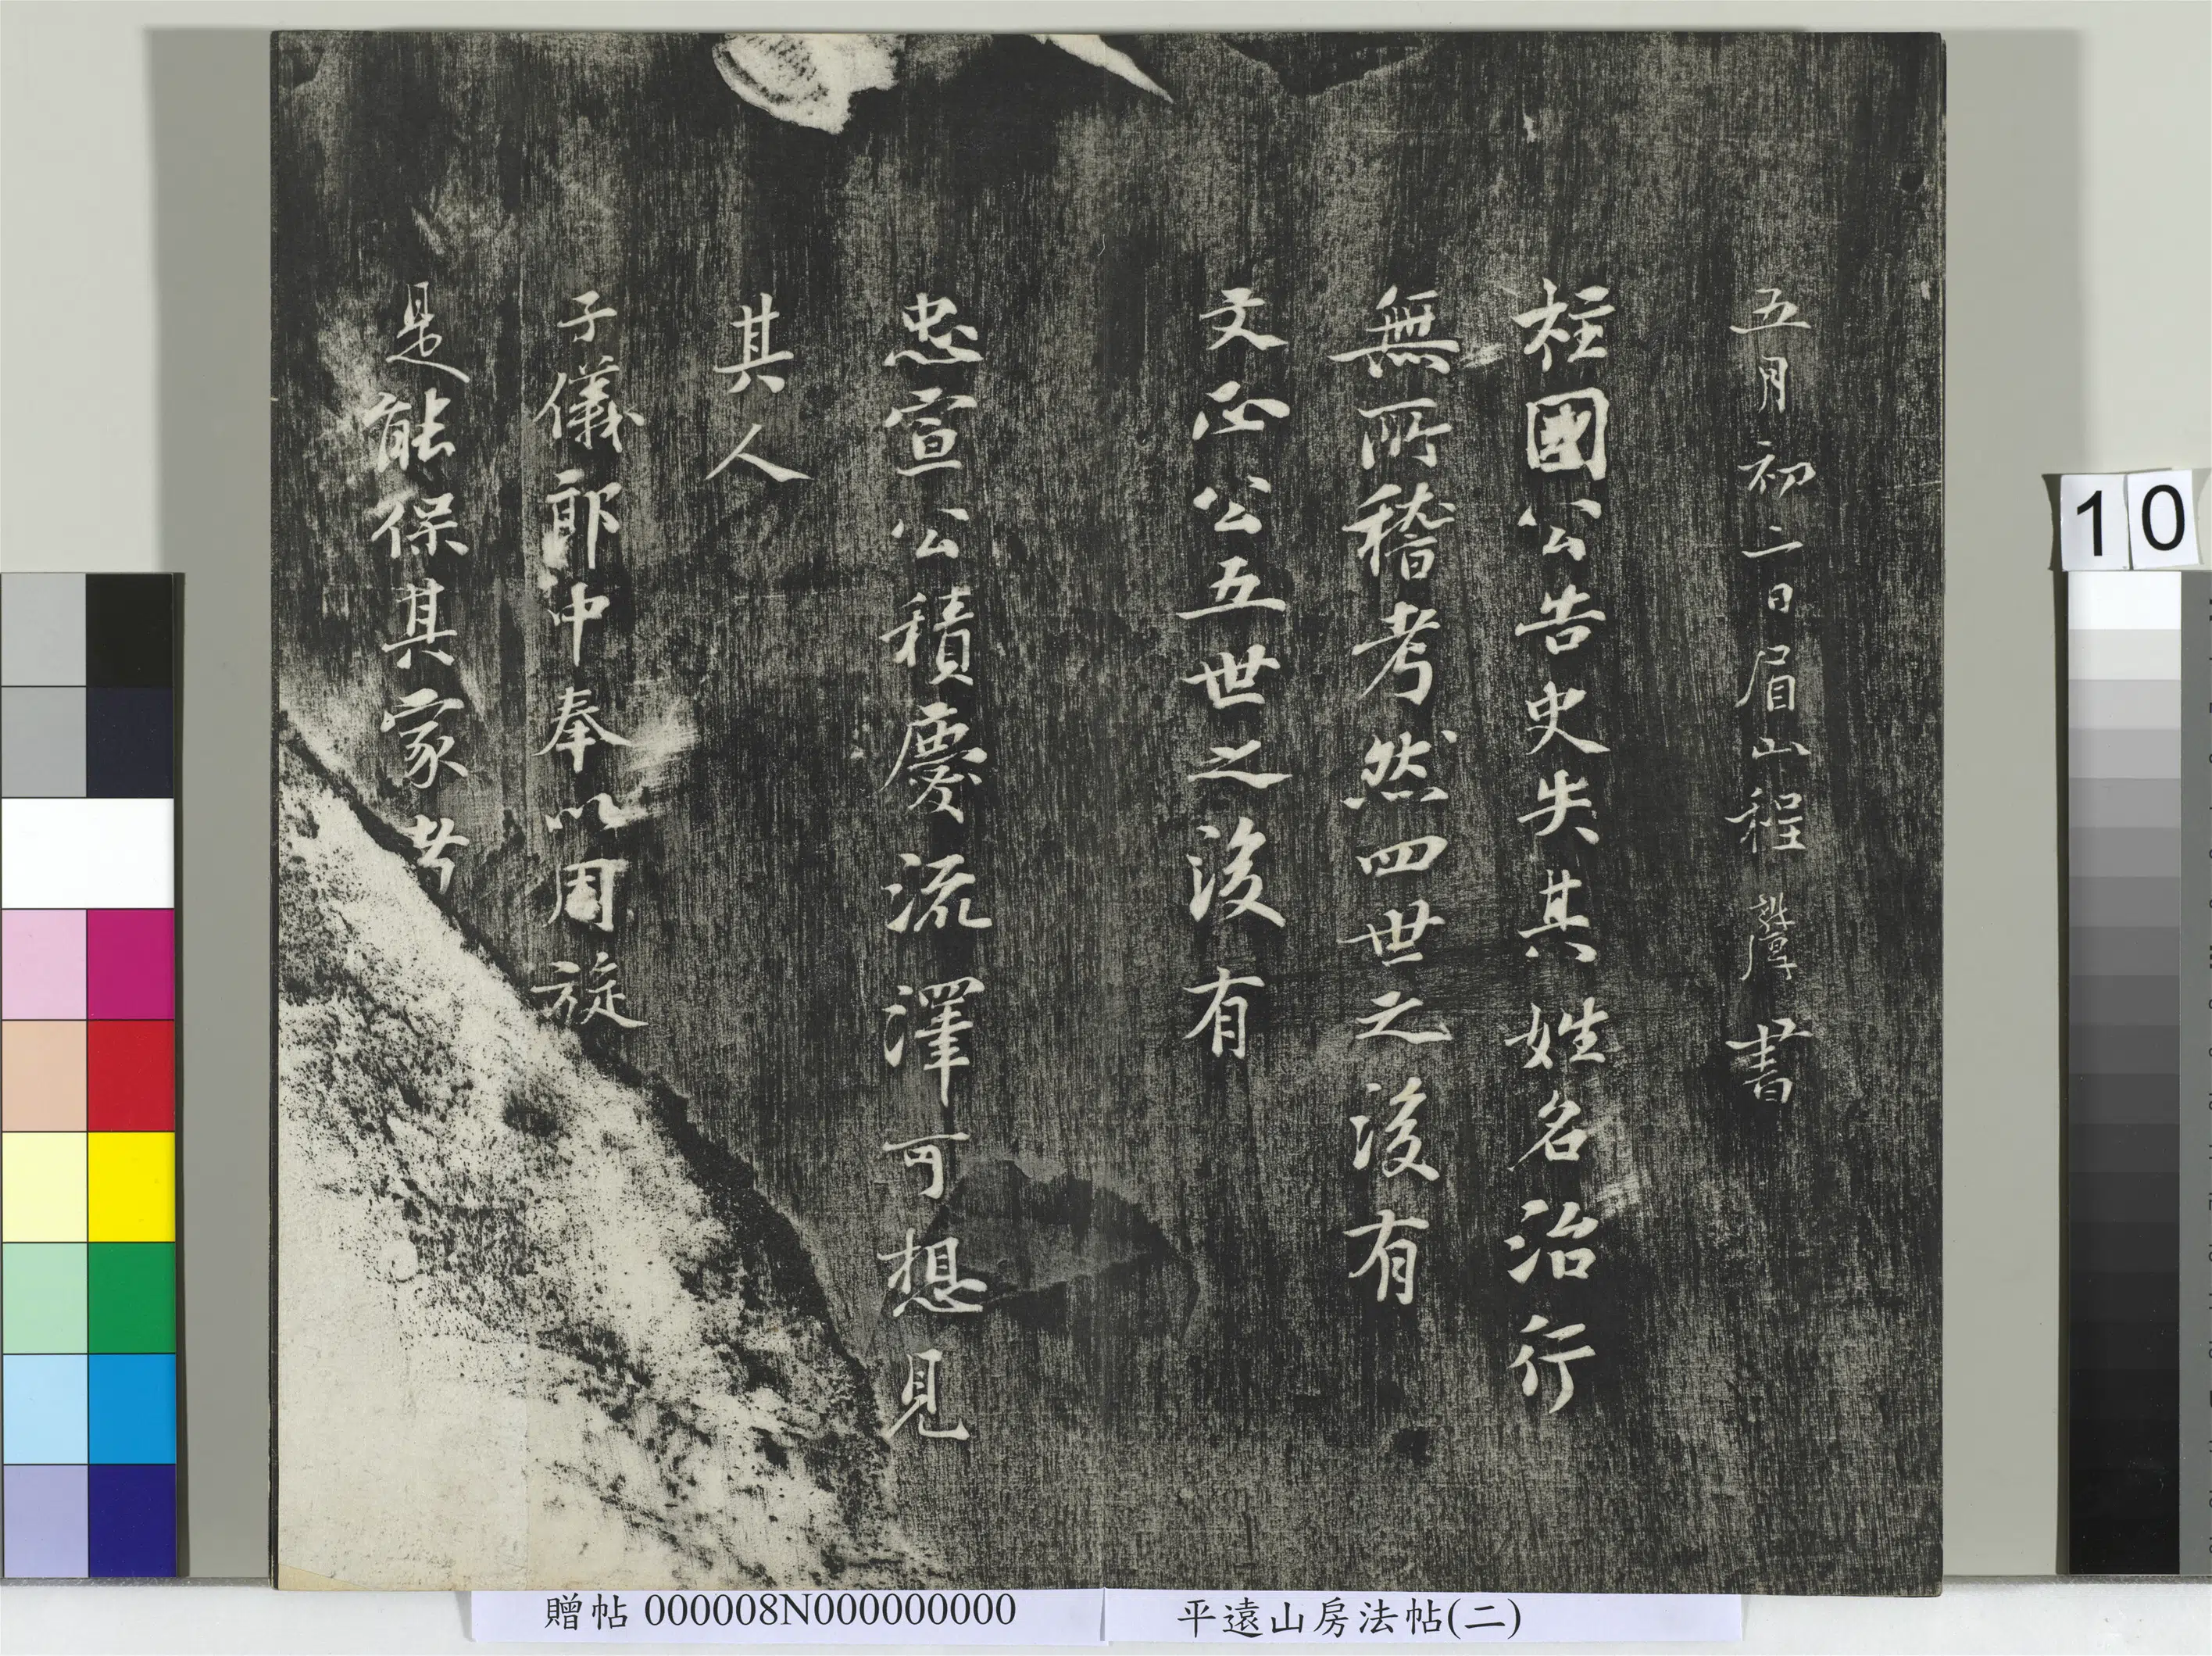 五月初二日眉山程䛒厚書
柱國公告史失其姓名治行
無所稽考然四世之後有
文正公五世之後有
忠宣公積慶流澤可想見
其人
子儀郎中奉以周旋
是能保其家者
10
贈帖 000008N000000000
平遠山房法帖(二)